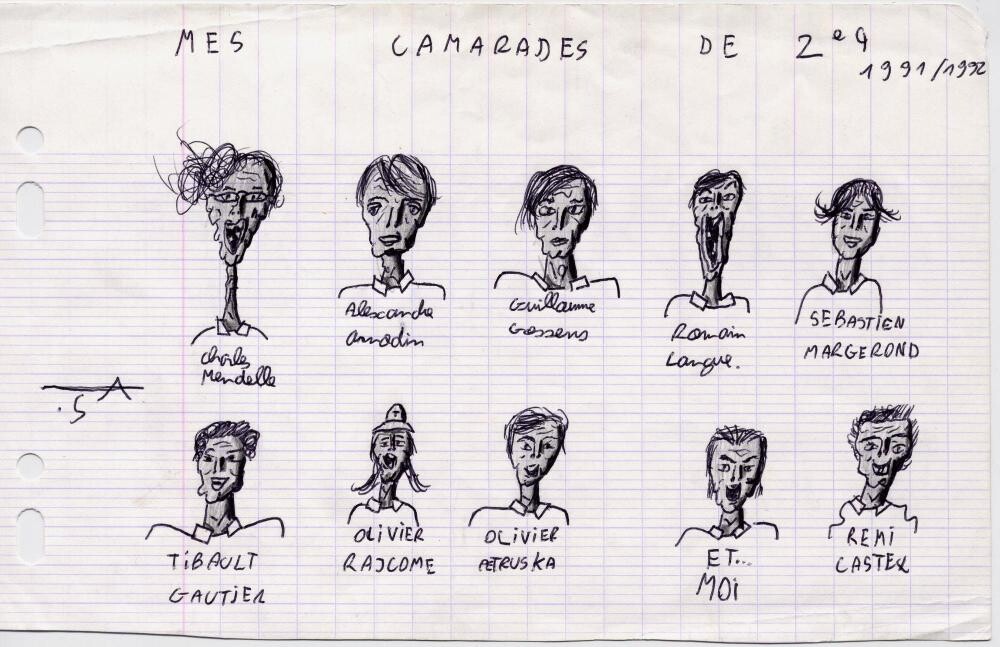 MES CAMARADES DE 2e9
1991/1992
Charles
Mendelle
Alexandre
Amodin
Guillaume
Gossens
Romain
Langue.
SEBASTIEN
MARGEROND
.5
TIBAULT
GAUTIER
OLIVIER
RAJCOME
OLIVIER
PETRUSKA
ET...
MOI
REMI
CASTEX